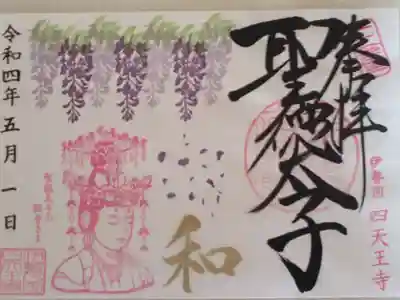 奉拝
聖徳太子
伊勢國 四天王寺
和
令和四年五月一日